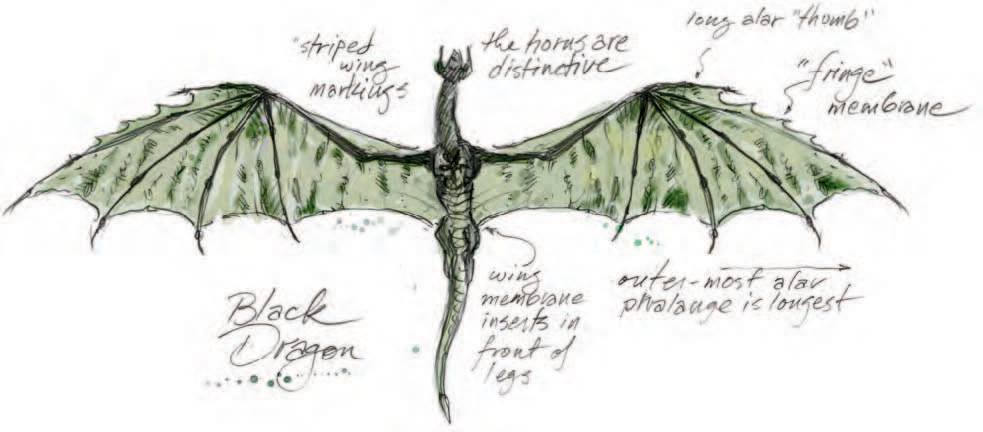 striped
wing
markings
the horns are
distinctive
long alar "thumb"
"fringe"
membrane
wing
membrane
inserts in
front of
legs
outer-most alar
phalange is longest
Black
Dragon